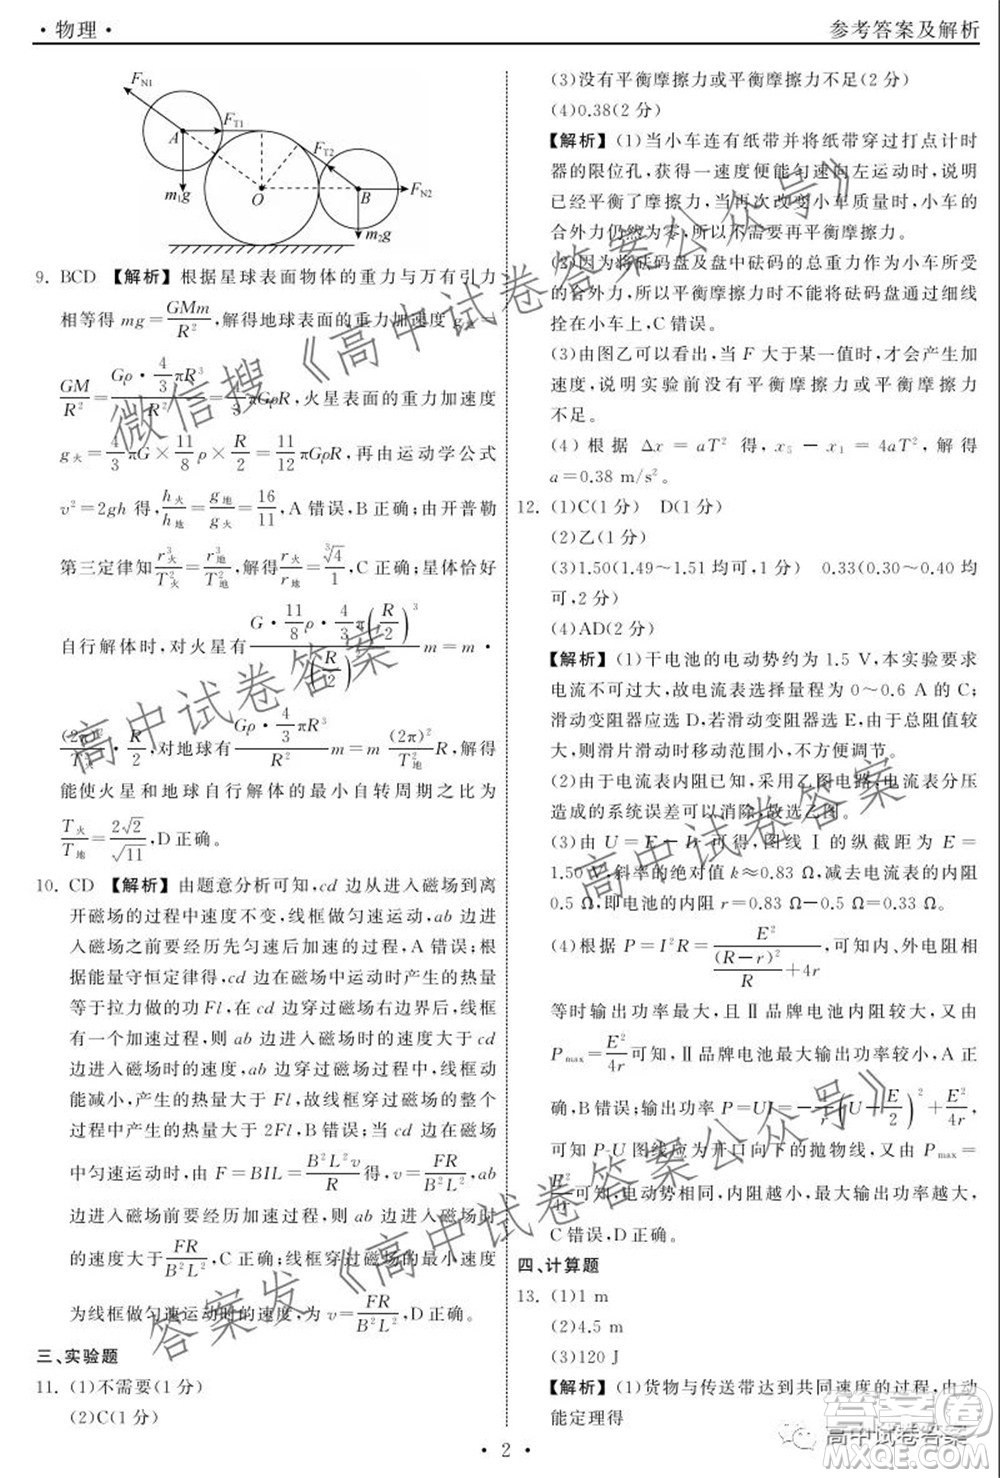 ·物理·
参考答案及解析
F_N1
A
F_T1
m₁g
O
F_T2
B
F_N2
m₂g
9. BCD 【解析】根据星球表面物体的重力与万有引力
相等得 mg=GMm/R²,解得地球表面的重力加速度 g地=
GM/R²=(Gρ·4/3πR³)/R²=4/3πGρR,火星表面的重力加速度
g火=4/3πG×11/8ρ×R/2=11/12πGρR,再由运动学公式
v²=2gh 得,h火/h地=g地/g火=16/11,A 错误,B 正确;由开普勒
第三定律知 r火³/T火²=r地³/T地²,解得 r火/r地=∛4/1,C 正确;星体恰好
自行解体时,对火星有 (G·11/8ρ·4/3π(R/2)³)/(R/2)² m=m·
(2π)²/T火²·R/2,对地球有 (Gρ·4/3πR³)/R² m=m(2π)²/T地² R,解得
能使火星和地球自行解体的最小自转周期之比为
T火/T地=2√2/√11,D 正确。
10. CD 【解析】由题意分析可知,cd 边从进入磁场到离
开磁场的过程中速度不变,线框做匀速运动,ab 边进
入磁场之前要经历先匀速后加速的过程,A 错误;根
据能量守恒定律得,cd 边在磁场中运动时产生的热量
等于拉力做的功 Fl,在 cd 边穿过磁场右边界后,线框
有一个加速过程,则 ab 边进入磁场时的速度大于 cd
边进入磁场时的速度,线框穿过磁场过程中,运动动
能减小,产生的热量大于 Fl,故线框穿过磁场的整个
过程中产生的热量大于 2Fl,B 错误;cd 边在磁场
中匀速运动时,由 F=BIL=B²L²v/R 得,v=FR/B²L²,ab
边进入磁场前要经历加速过程,故 ab 边进入磁场时
的速度大于 FR/B²L²,C 正确;线框穿过磁场的最小速度
为线框做匀速运动时的速度,为 v=FR/B²L²,D 正确。
三、实验题
11. (1)不需要(1 分)
(2)C(1 分)
(3)没有平衡摩擦力或平衡摩擦力不足(2 分)
(4)0.38(2 分)
【解析】(1)当小车连有纸带并将纸带穿过打点计时
器的限位孔,获得一速度便能匀速向左运动时,说明
已经平衡了摩擦力,当再次改变小车质量时,小车的
合外力仍然为零,所以不需要再平衡摩擦力。
(2)因为是将砝码盘及盘中砝码的总重力作为小车所受
的合外力,所以平衡摩擦力时不能将砝码盘通过细线
拴在小车上,C 错误。
(3)由图乙可以看出,当 F 大于某一值时,才会产生加
速度,说明实验前没有平衡摩擦力或平衡摩擦力
不足。
(4)根据 Δx=aT² 得,x₅-x₁=4aT²,解得
a=0.38 m/s²。
12. (1)C(1 分) D(1 分)
(2)乙(1 分)
(3)1.50(1.49~1.51 均可,1 分) 0.33(0.30~0.40 均
可,2 分)
(4)AD(2 分)
【解析】(1)干电池的电动势约为 1.5 V,本实验要求
电流不可过大,故电流表选择量程为 0~0.6 A 的 C;
滑动变阻器应选 D,若滑动变阻器选 E,由于总阻值较
大,则滑片滑动时移动范围较小,不方便调节。
(2)由于电流表内阻已知,采用乙图电路,电流表分压
造成的系统误差可以消除,故选乙图。
(3)由 U=E-Ir 可得,图线 Ⅰ 的纵截距为 E=
1.50 V,斜率的绝对值 k=0.83 Ω,减去电流表内阻
0.5 Ω,即电池的内阻 r=0.83 Ω-0.5 Ω=0.33 Ω。
(4)根据 P=I²R=E²/((R-r)²/R+4r),可知内、外电阻相
等时输出功率最大,且 Ⅱ 品牌电池内阻较大,又由
P_max=E²/4r 可知,Ⅱ 品牌电池最大输出功率较小,A 正
确,B 错误;输出功率 P=UI=-1/r(U-E/2)²+E²/4r,
可知 P-U 图线应为开口向下的抛物线,又 P_max=
E²/4r 可知,电动势相同,内阻越小,最大输出功率越大,
C 错误,D 正确。
四、计算题
13. (1)1 m
(2)4.5 m
(3)120 J
【解析】(1)货物与传送带达到共同速度的过程,由动
能定理得
·2·
微信搜《高中试卷答案公众号》
高中试卷答案
高中试卷答案
答案发《高中试卷答案公众号》
高中试卷答案
答案圈
MXQE.COM